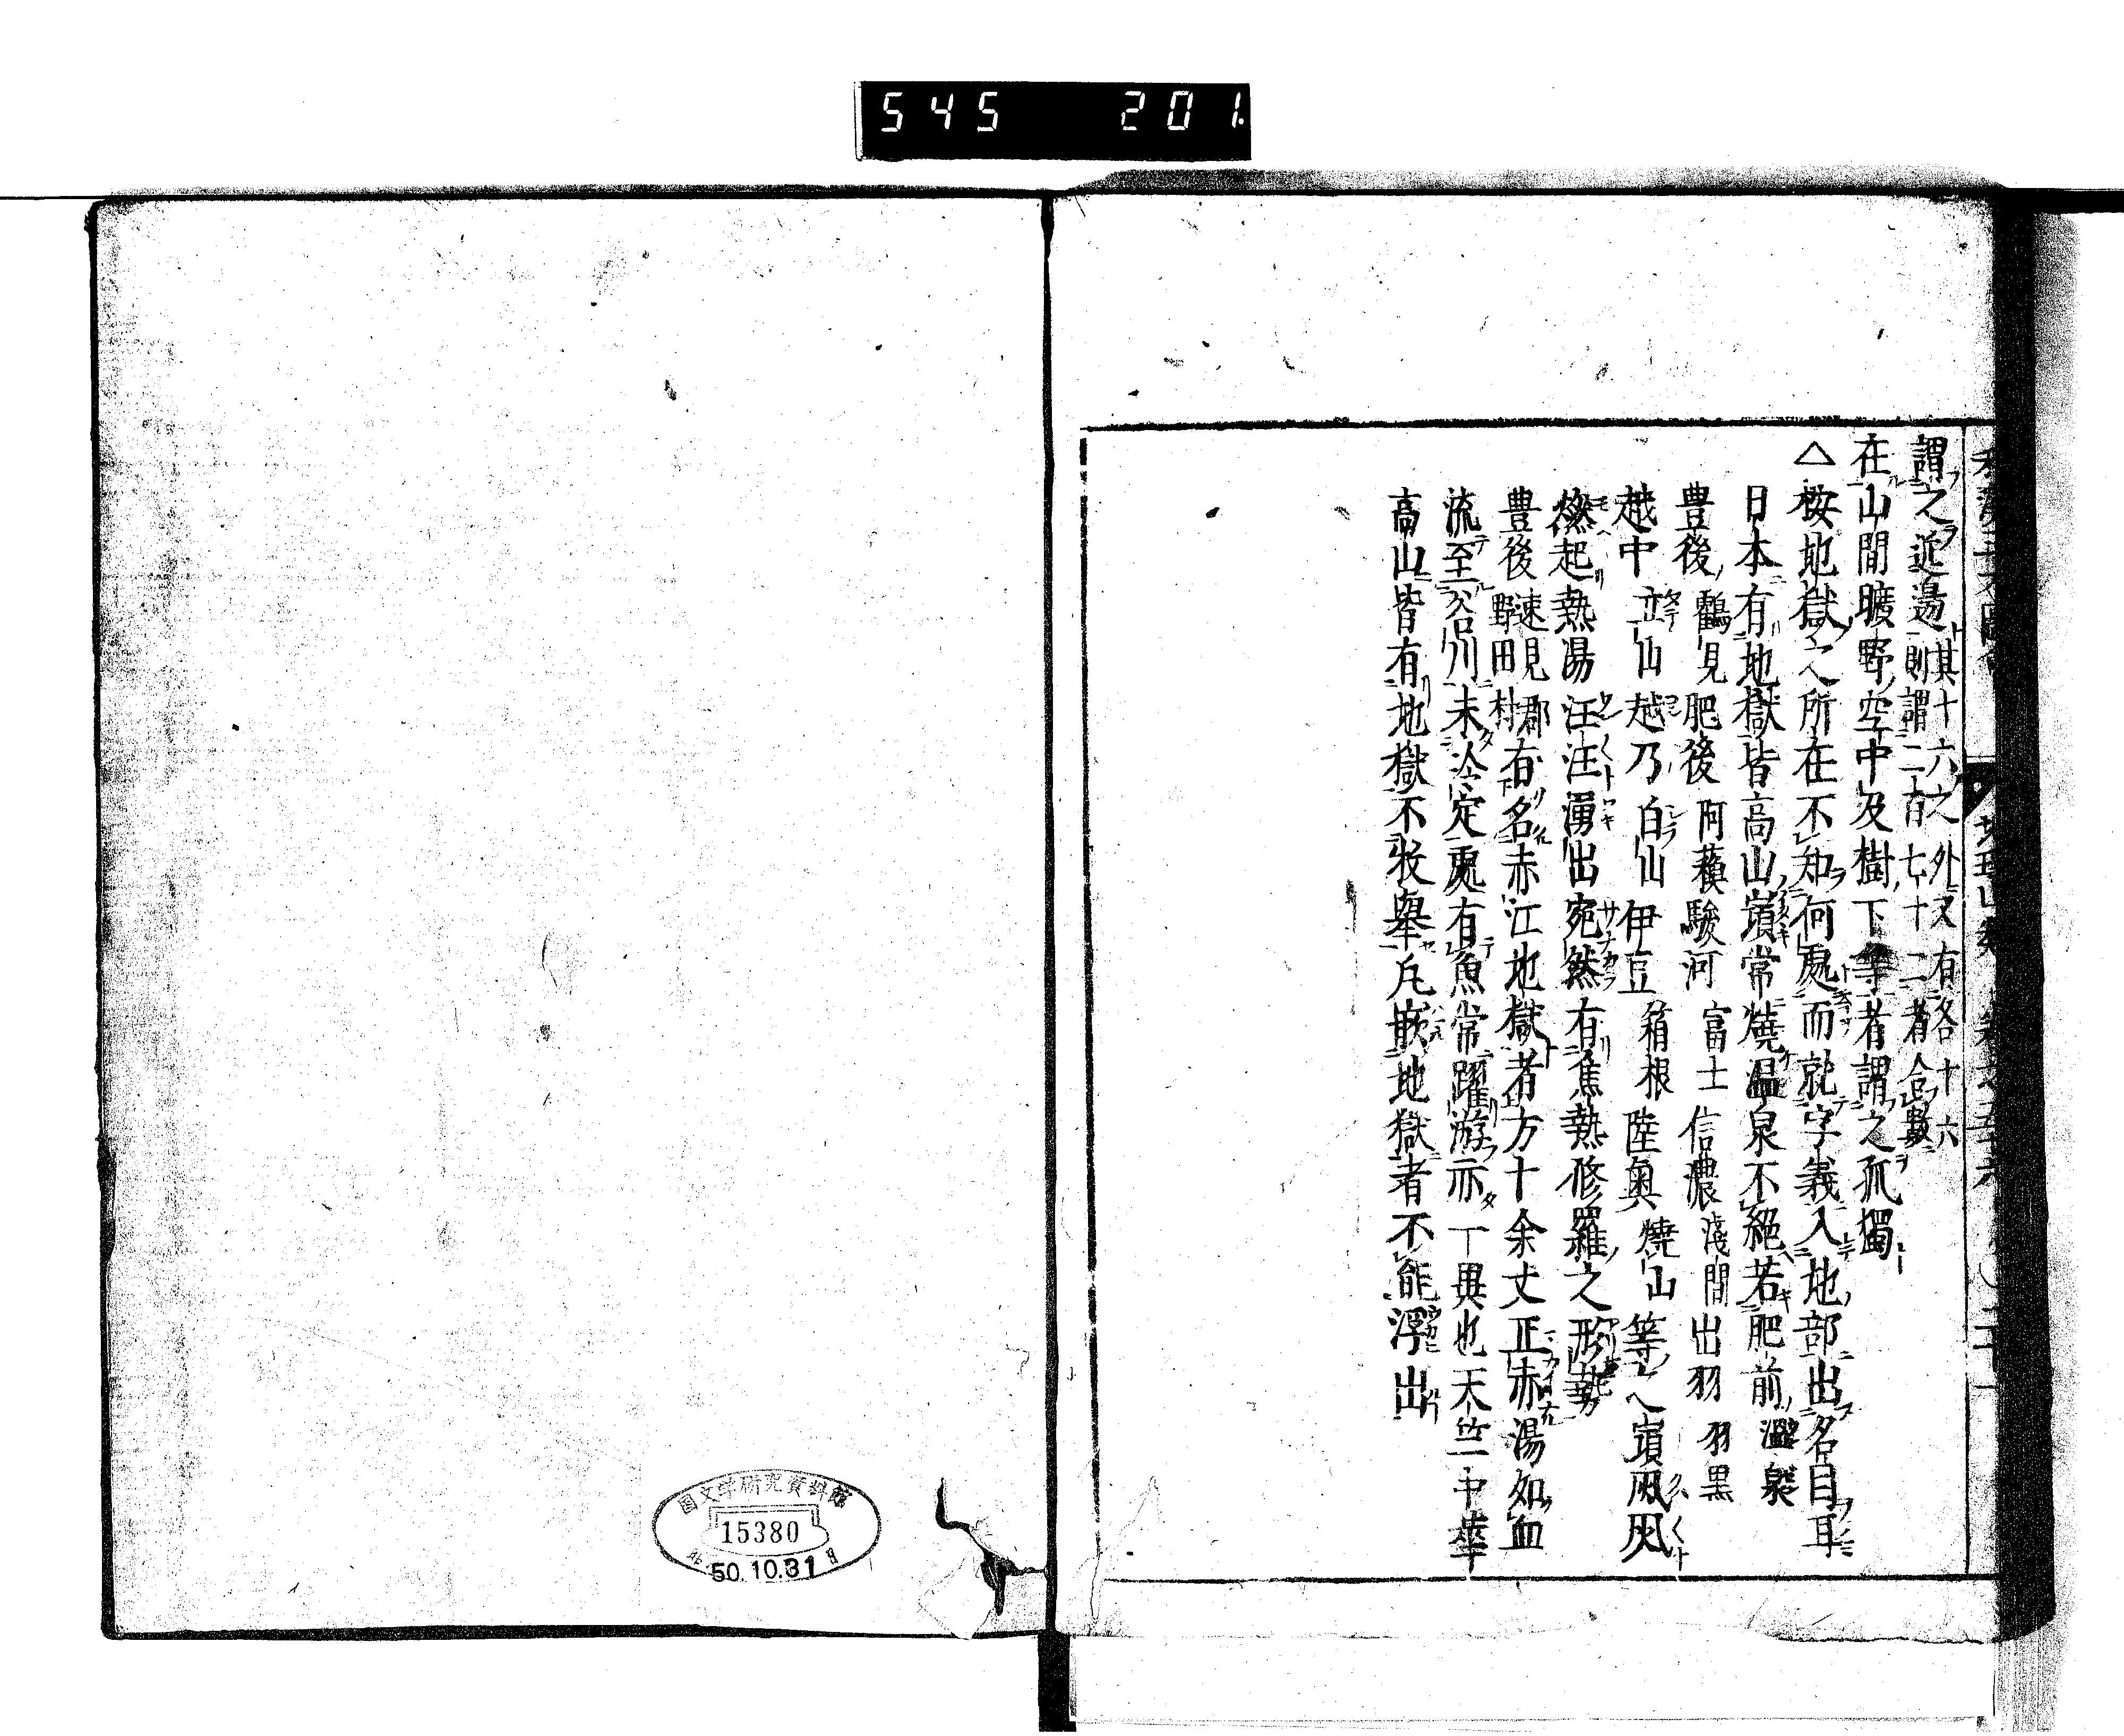 545 201.
謂之近邉其十六之外又有各十六
則謂二百七十二者合數
在山間曠野空中及樹下等者謂之孤獨
△桉地獄之所在不知何處而就字義入地部出名目耳
日本有地獄皆高山嶺常燒温泉不絕若肥前
豊後鶴見肥後阿蘇駿河富士信濃淺間出羽羽黒
越中立山越乃白山伊豆箱根陸奥燒山等之嶺
燃起熱湯汪汪湧出宛然有焦熱修羅之形勢
豊後速見郡野田村有名赤江地獄者方十余丈正赤湯如血
流至谷川未冷定處有魚常躍游亦一異也天竺中華
高山皆有地獄不枚舉凡嵌地獄者不能浮出
国文学研究資料館
15380
50.10.31